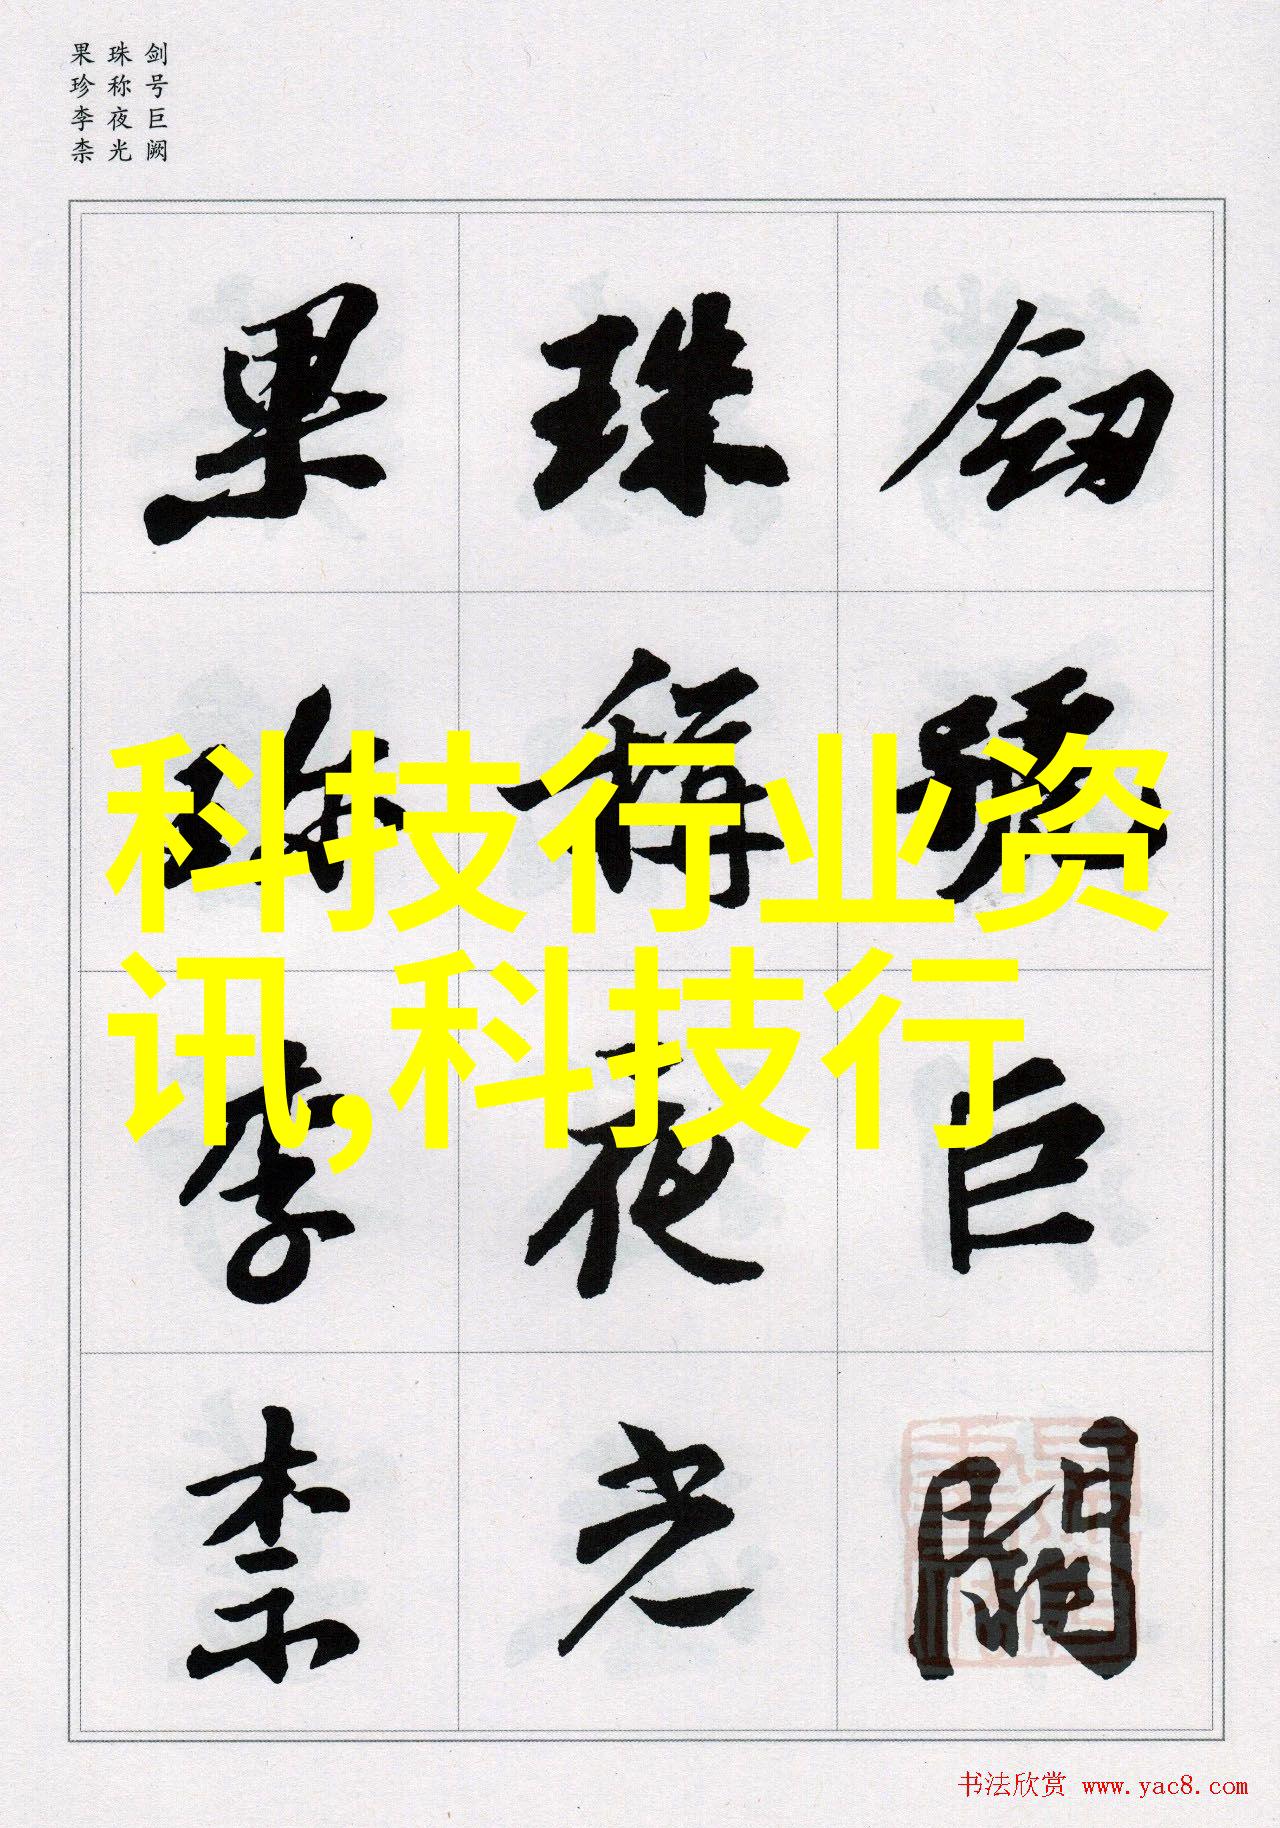 剑号巨阙
珠称夜光
果珍李柰
劒號巨闕
珠稱夜光
果珍李柰
科技行业资
讯,科技行
书法欣赏 www.yac8.com